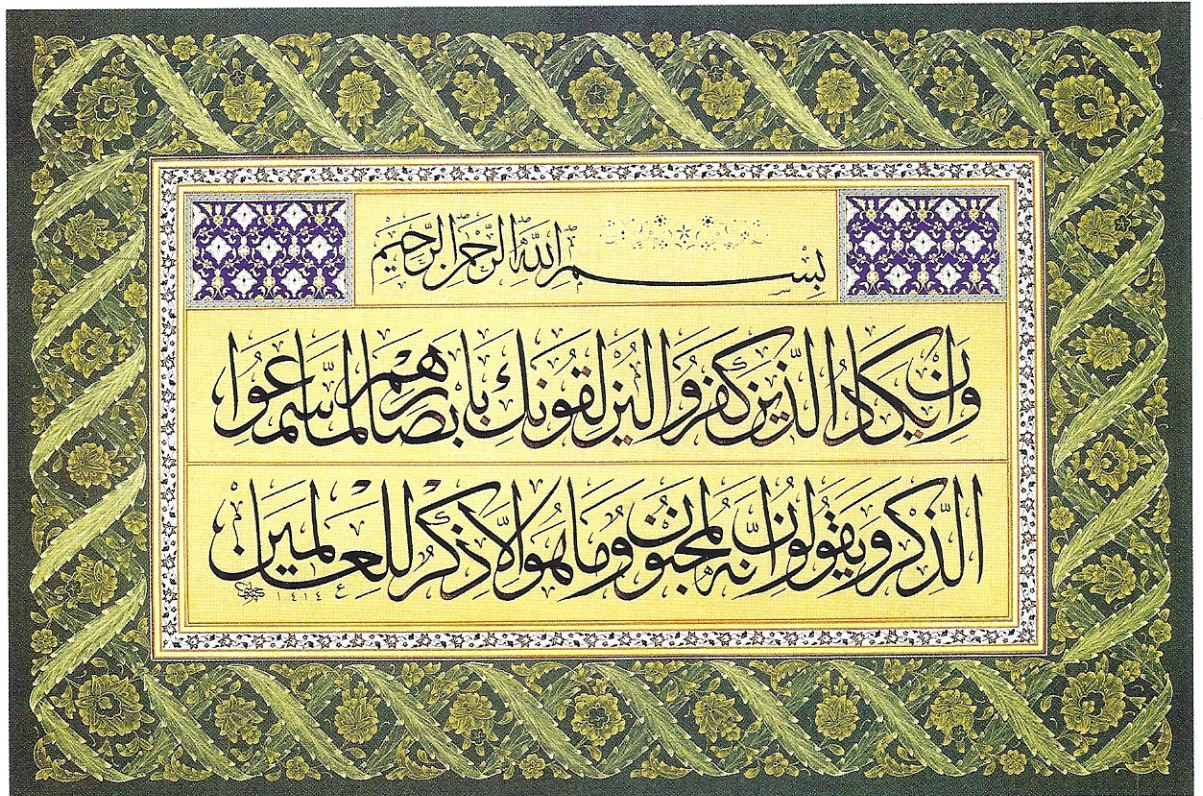 بِسْمِ اللَّهِ الرَّحْمَنِ الرَّحِيمِ
وَإِنْ يَكَادُ الَّذِينَ كَفَرُوا لَيُزْلِقُونَكَ بِأَبْصَارِهِمْ لَمَّا سَمِعُوا
الذِّكْرَ وَيَقُولُونَ إِنَّهُ لَمَجْنُونٌ وَمَا هُوَ إِلَّا ذِكْرٌ لِلْعَالَمِينَ
١٤١٤